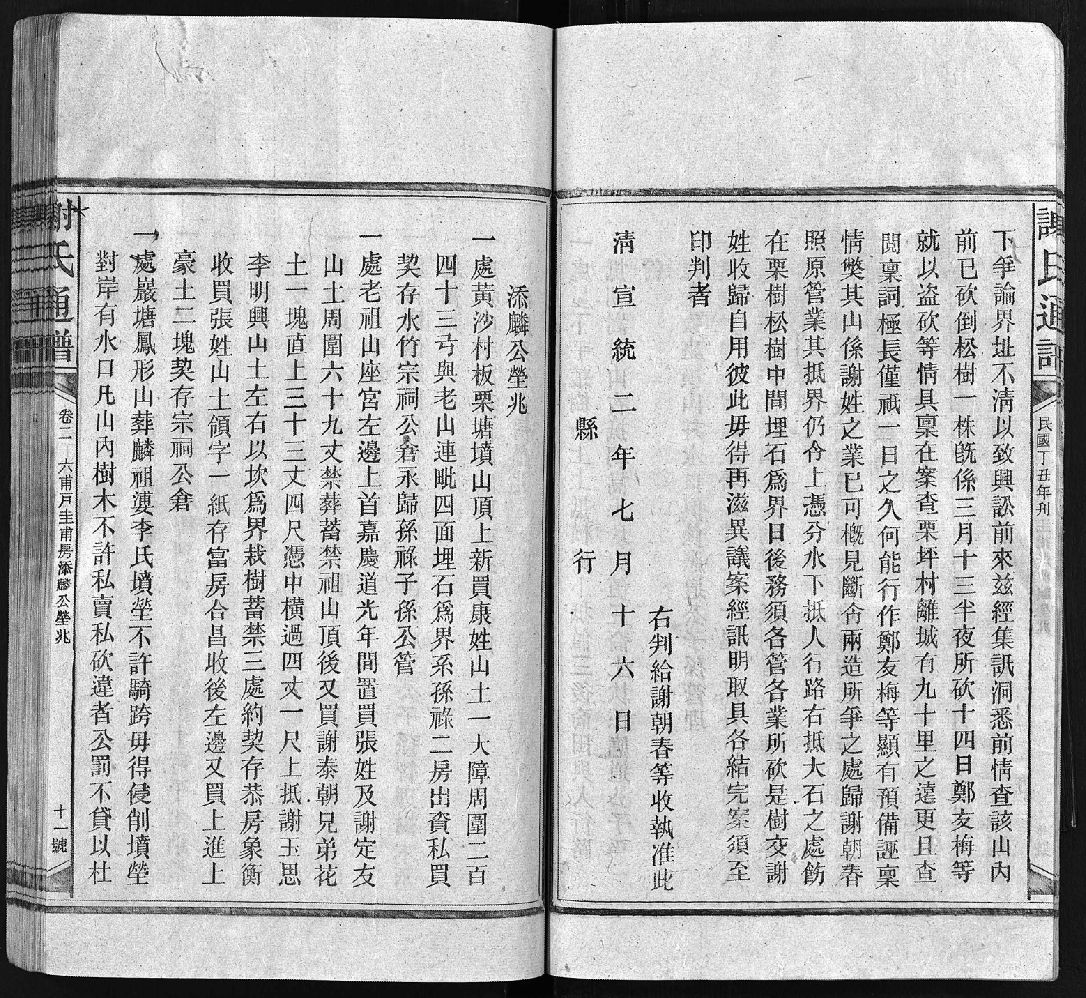 民國丁丑年刊
下爭論界址不淸以致興訟前來玆經集訊洞悉前情查該山內
前已砍倒松樹一株旣係三月十三半夜所砍十四日鄭友梅等
就以盗砍等情具稟在案查栗坪村離城有九十里之遠更日查
閱稟詞極長僅祇一日之久何能行作鄭友梅等顯有預備誣稟
情獘其山係謝姓之業已可概見斷令兩造所爭之處歸謝朝春
照原管業其抵界仍令上憑分水下抵人行路右抵大石之處飭
在栗樹松樹中間埋石爲界日後務須各管各業所砍是樹交謝
姓收歸自用彼此毋得再滋異議案經訊明取具各結完案須至
印判者
右判給謝朝春等收執准此
淸宣統二年七月十六日
縣行
添麟公塋兆
一處黃沙村板栗塘墳山頂上新買康姓山土一大障周圍二百
四十三弓與老山連毗四面埋石爲界系孫祿二房出資私買
契存水竹宗祠公倉永歸孫祿子孫公管
一處老祖山座宮左邊上首嘉慶道光年間置買張姓及謝定友
山土周圍六十九丈禁葬蓄禁祖山頂後又買謝泰朝兄弟花
土一塊直上三十三丈四尺憑中橫過四丈一尺上抵謝玉思
李明興山土左右以坎爲界栽樹蓄禁三處約契存恭房象衡
收買張姓山土領字一紙存富房合昌收後左邊又買上進上
豪土二塊契存宗祠公倉
一處巖塘鳳形山葬麟祖淒李氏墳塋不許騎跨毋得侵削墳塋
對岸有水口凡山內樹木不許私賣私砍違者公罰不貸以杜
謝氏通譜
卷二
六甫戶圭甫房添麟公塋兆
十一號